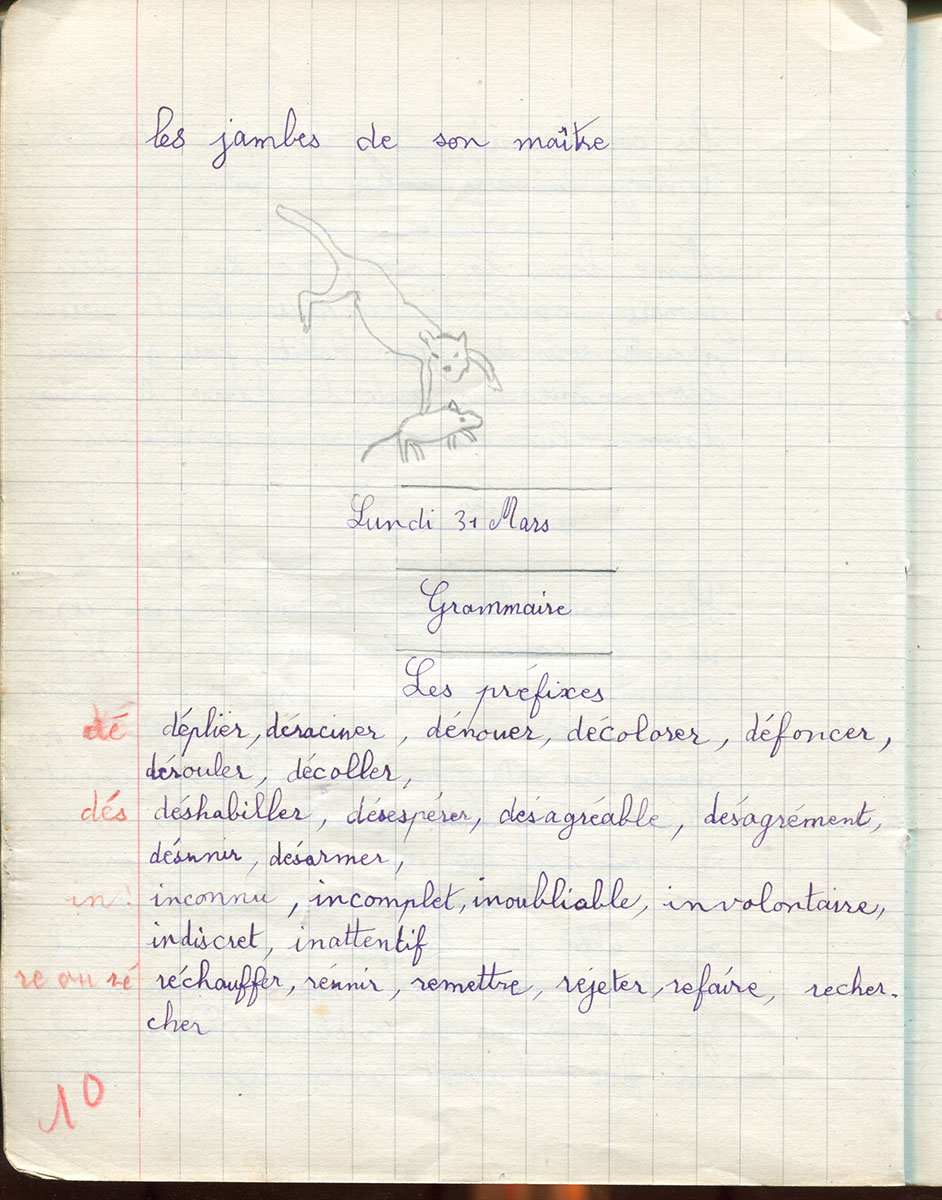 les jambes de son maître
Lundi 31 Mars
Grammaire
Les préfixes
dé déplier, déraciner, dénouer, décolorer, défoncer,
dérouler, décoller,
dés déshabiller, désespérer, désagréable, désagrément,
désunir, désarmer,
in: inconnu, incomplet, inoubliable, involontaire,
indiscret, inattentif
re ou ré réchauffer, réunir, remettre, rejeter, refaire, recher-
cher
10